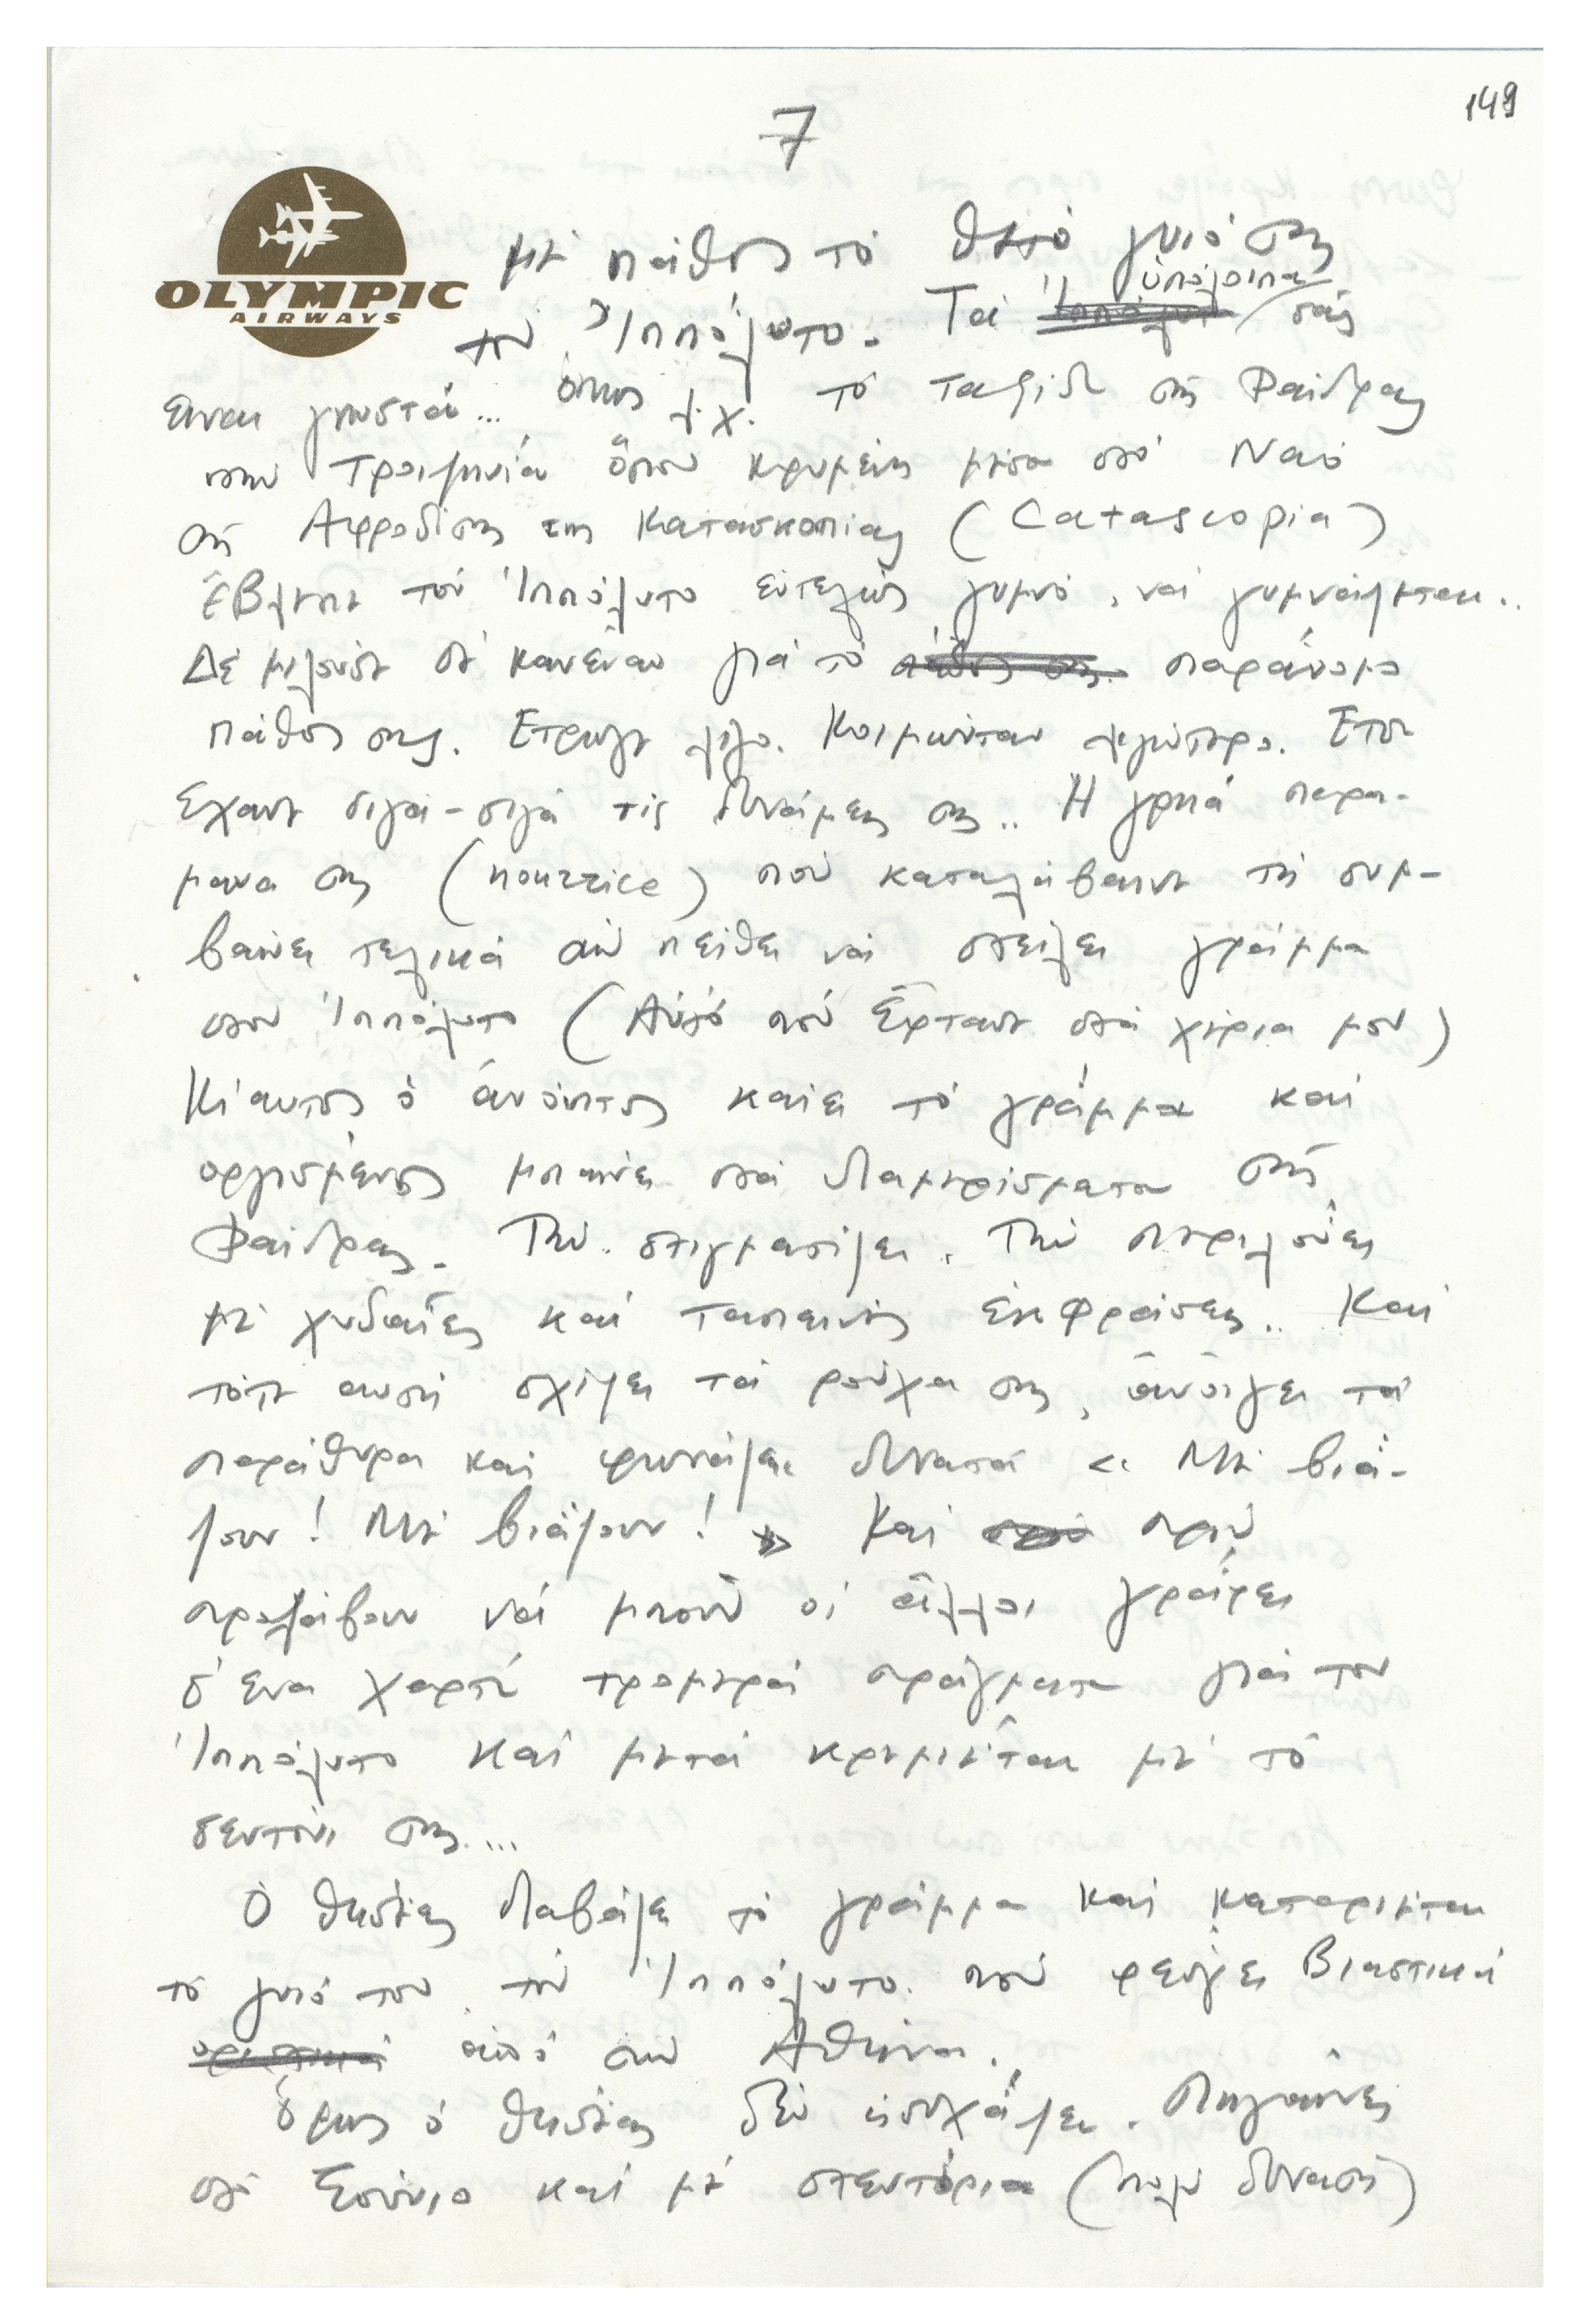 149
7
OLYMPIC
AIRWAYS
μὲ πάθος τὸ θετό γυιό της
τὸν Ἱππόλυτο. Τὰ ὑπόλοιπα σᾶς
εἶναι γνωστά... ὅπως π.χ. τὸ ταξίδι τῆς Φαίδρας
στὴν Τροιζηνία ὅπου κρυμένη μέσα στὸ Ναό
τῆς Αφροδίτης της Κατασκοπίας (Catascopia)
ἔβλεπε τὸν Ἱππόλυτο ἐντελῶς γυμνό, νὰ γυμνάζεται..
Δὲ μιλοῦσε σὲ κανέναν γιὰ τὸ παράνομο
πάθος της. Ετρωγε λίγο. Κοιμώνταν λιγώτερο. Ετσι
ἔχανε σιγά-σιγά τὶς δυνάμεις της.. Η γρηά παρα-
μανα της (nourrice) ποὺ καταλάβαινε τὴ συμ-
βαίνει τελικὰ τὴν πείθει νὰ στείλει γράμμα
στὸν Ἱππόλυτο (Αὐτό ποὺ ἔφτανε στὰ χέρια μου)
Κι' αυτός ὁ ἀνόητος καίει τὸ γράμμα καὶ
οργισμένος μπαίνει στὰ διαμερίσματα τῆς
Φαίδρας. Τὴν στιγματίζει. Τὴν περιλούει
μὲ χυδαῖες καὶ ταπεινὲς ἐκφράσεις.. Καὶ
τότε αυτὴ σχίζει τὰ ροῦχα της, ἀνοίγει τὰ
παράθυρα καὶ φωνάζει δυνατὰ « Μὲ βιά-
ζουν! Μὲ βιάζουν! » Καὶ πρὶν
προλάβουν νὰ μποῦν οἱ ἄλλοι γράφει
σ' ενα χαρτί τρομερὰ πράγματα γιὰ τον
Ἱππόλυτο καὶ μετὰ κρεμιέται μὲ τὸ
σεντόνι της...
Ὁ Θησέας διαβάζει τὸ γράμμα καὶ καταριέται
τὸ γυιό του τὸν Ἱππόλυτο ποὺ φεύγει βιαστικά
ἀπό τὴν Αθήνα.
Ὅμως ὁ Θησέας δὲν ἡσυχάζει. Πηγαίνει
στὸ Σούνιο καὶ μὲ στεντόρια (πολύ δυνατή)